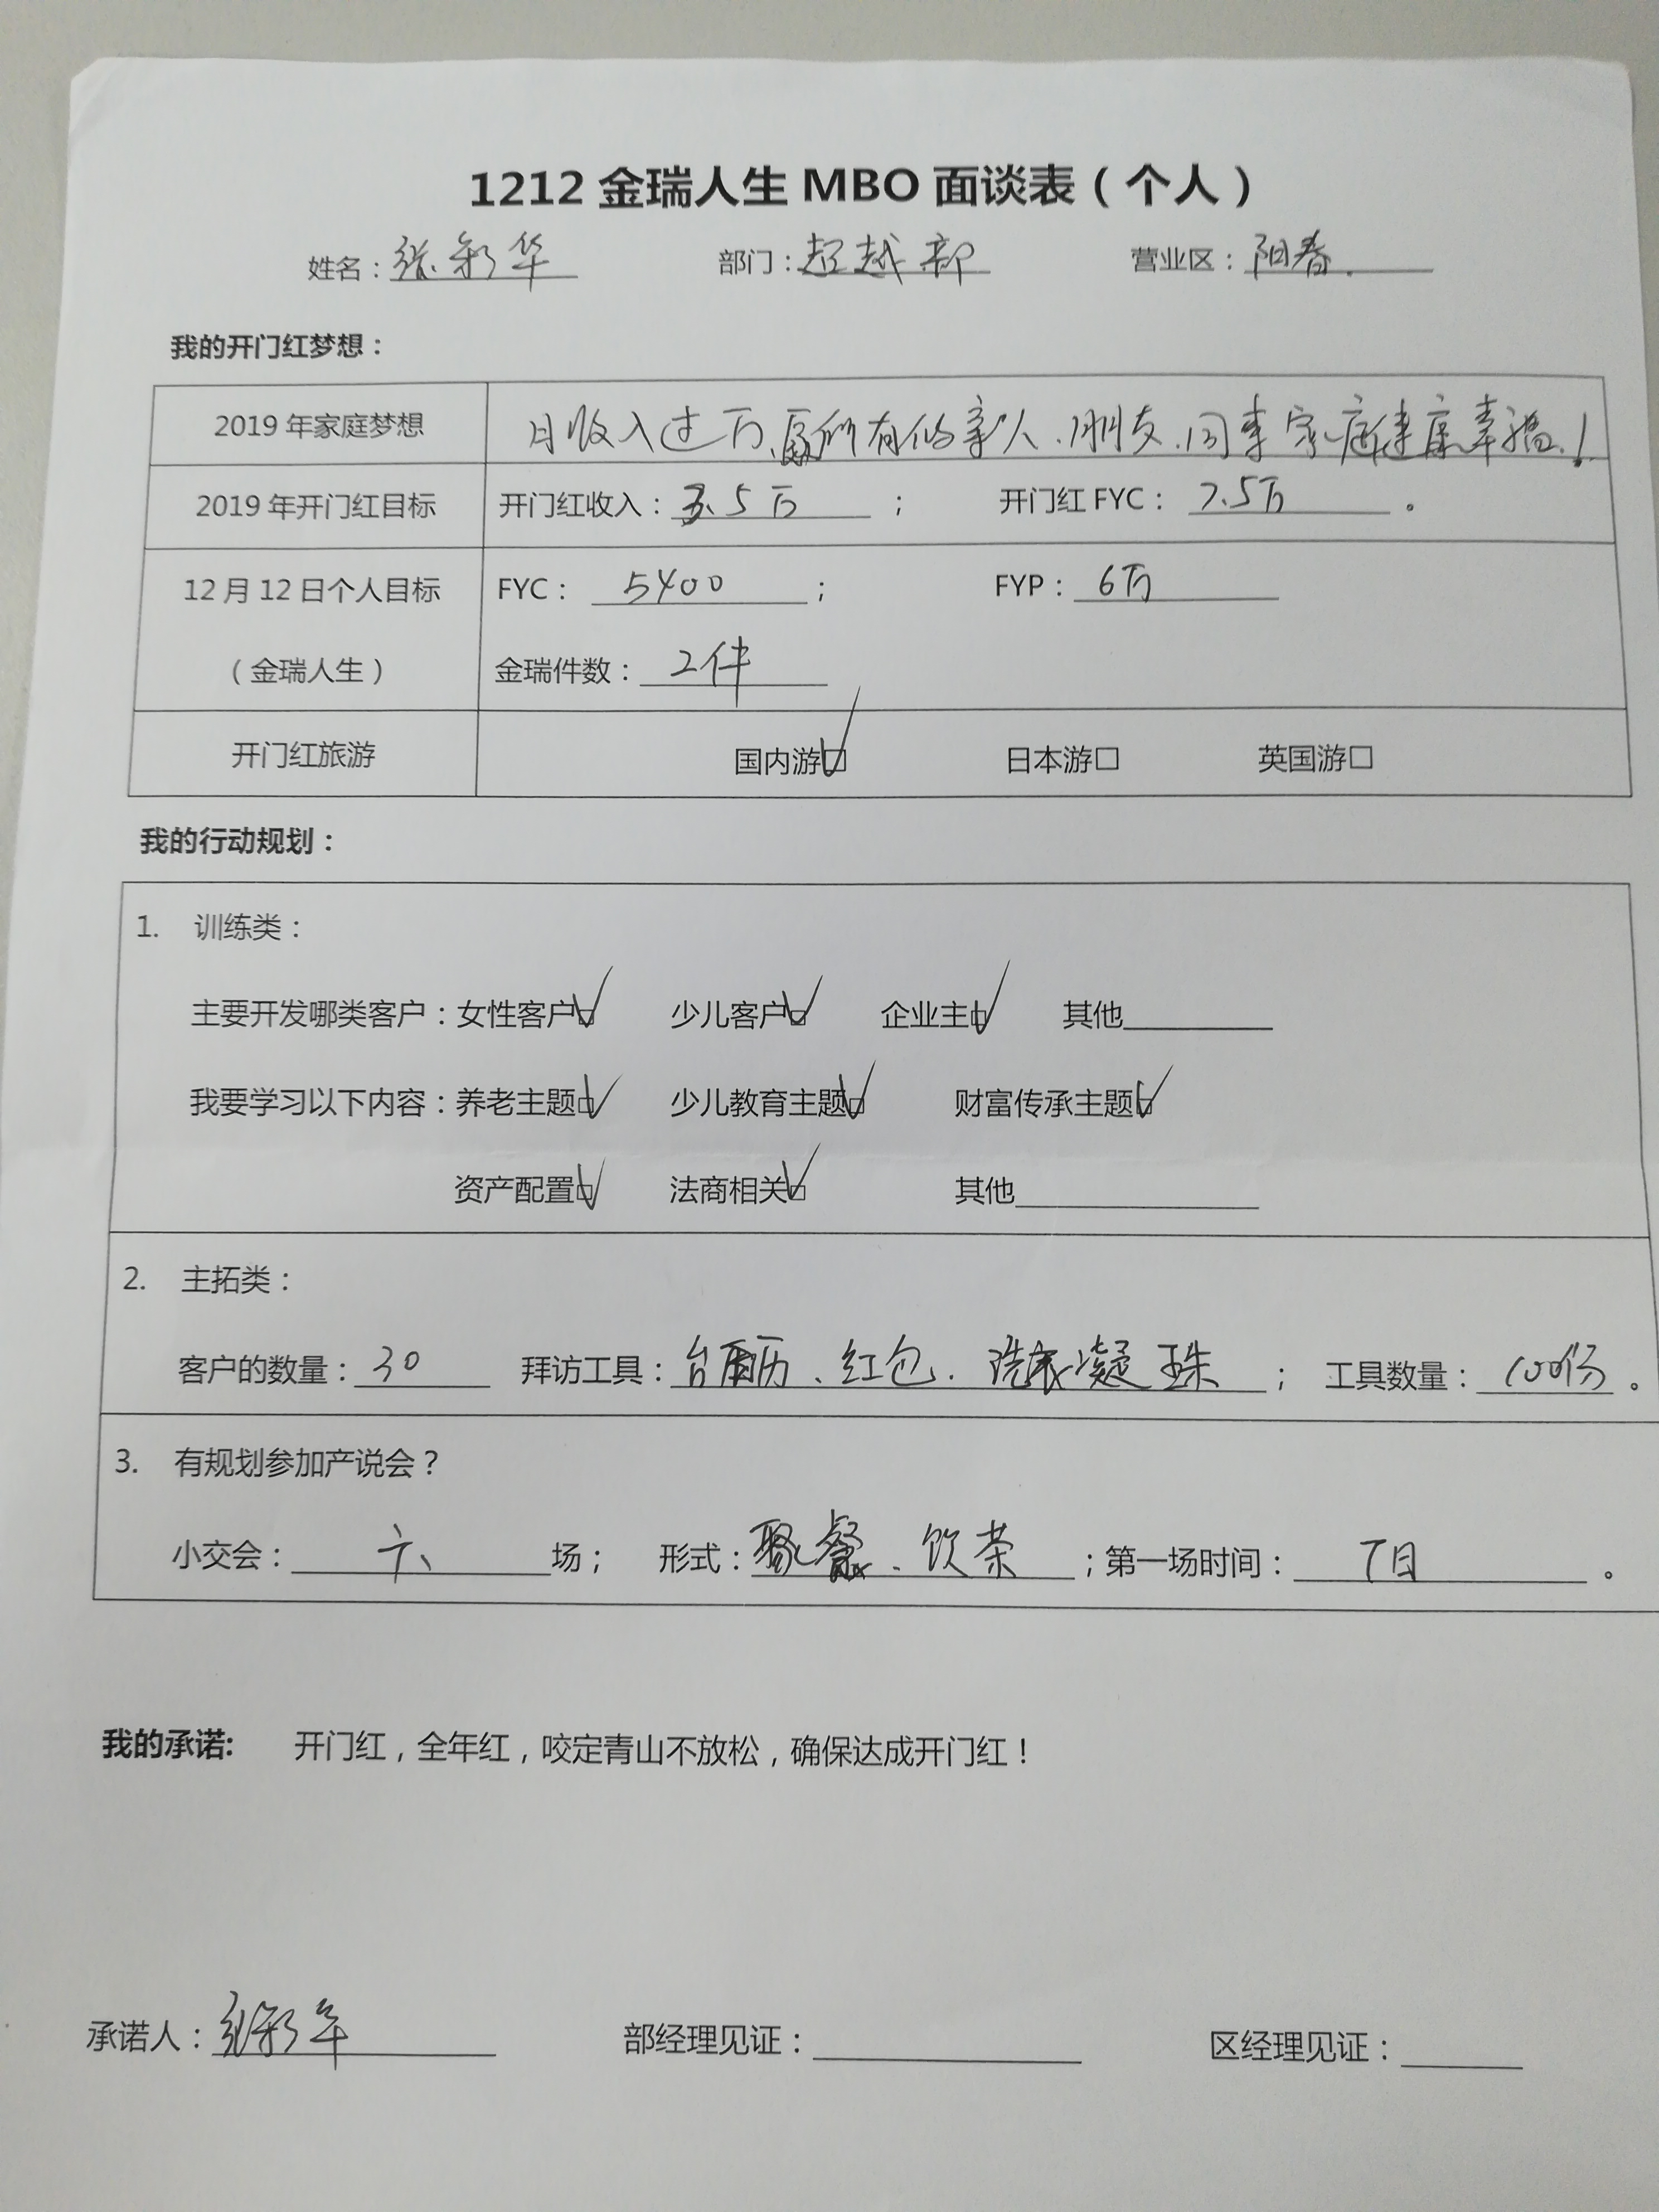 1212 金瑞人生 MBO 面谈表（个人）
姓名：张彩华 部门：超越部 营业区：阳春.
我的开门红梦想：
2019 年家庭梦想 月收入过万、愿所有的亲人、朋友、同事家庭健康幸福！
2019 年开门红目标 开门红收入：3.5万； 开门红 FYC：7.5万。
12 月 12 日个人目标 FYC：5400； FYP：6万
（金瑞人生） 金瑞件数：2件
开门红旅游 国内游☑ 日本游□ 英国游□
我的行动规划：
1. 训练类：
主要开发哪类客户：女性客户☑ 少儿客户☑ 企业主☑ 其他
我要学习以下内容：养老主题☑ 少儿教育主题☑ 财富传承主题☑
资产配置☑ 法商相关☑ 其他
2. 主拓类：
客户的数量：30 拜访工具：台历、红包、洗衣凝珠； 工具数量：100份。
3. 有规划参加产说会？
小交会：六场； 形式：聚餐、饮茶；第一场时间：7日。
我的承诺: 开门红，全年红，咬定青山不放松，确保达成开门红！
承诺人：张彩华 部经理见证： 区经理见证：